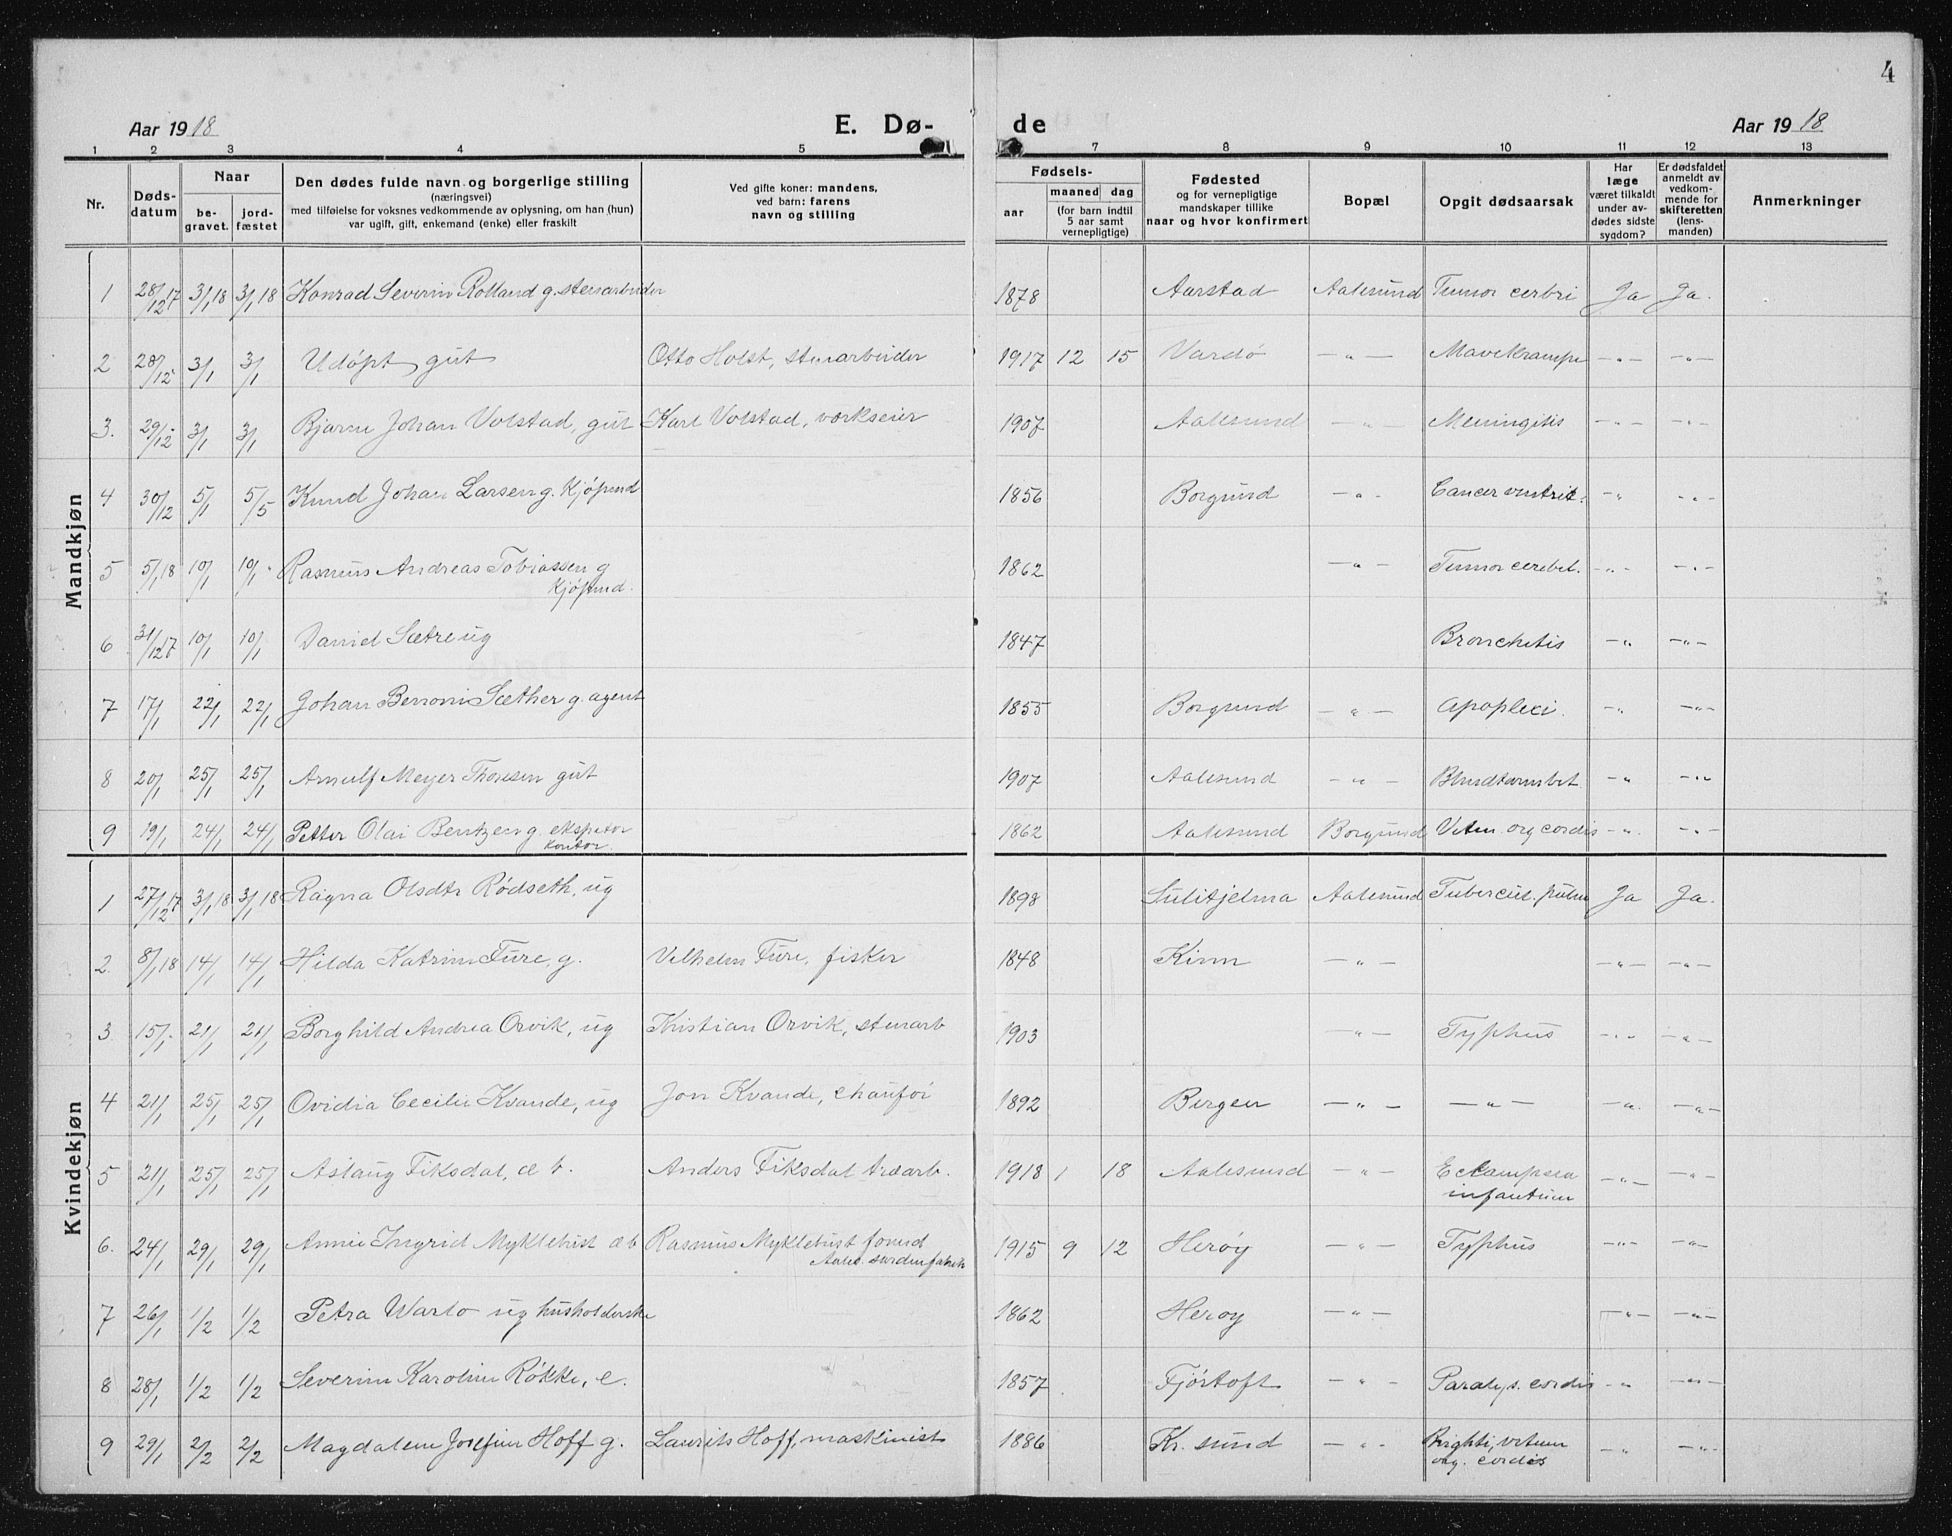 4
Aar 1918 E. Dø- de Aar 1918
1 2 3 4 5 7 8 9 10 11 12 13
Nr. Døds-datum Naar be-gravet. jord-fæstet Den dødes fulde navn og borgerlige stilling (næringsvei) med tilføielse for voksnes vedkommende av oplysning, om han (hun) var ugift, gift, enkemand (enke) eller fraskilt Ved gifte koner: mandens, ved barn: farens navn og stilling Fødsels- aar maaned dag (for barn indtil 5 aar samt vernepligtige) Fødested og for vernepligtige mandskaper tillike naar og hvor konfirmert Bopæl Opgit dødsaarsak Har læge været tilkaldt under av-dødes sidste sygdom? Er dødsfaldet anmeldt av vedkom-mende for skifteretten (lens-manden) Anmerkninger
Mandkjøn
1 28/12 17 3/1 18 3/1 18 Konrad Severin Rolland g. stenarbeider 1878 Aarstad Aalesund Tumor cerbri Ja Ja.
2 28/12 3/1 3/1 Udøpt gut Otto Holst, stenarbeider 1917 12 15 Vardø -"- Mavekrampe -"- -"-
3. 29/12 3/1 3/1 Bjarne Johan Volstad, gut Karl Volstad, værkseier 1907 Aalesund -"- Meningitis -"- -"-
4 30/12 5/1 5/5 Knud Johan Larsen g. Kjøpmd 1856 Borgund -"- Cancer ventric. -" -"-
5 5/1 18 10/1 10/1 Rasmus Andreas Tobiassen g 1862 -"- Tumor cerebet. -"- -"-
Kjøpmd.
6 31/12 17 10/1 10/1 Daniel Sætre ug 1847 Bronchitis -" -"-
7 17/1 22/1 22/1 Johan Benoni Sæther g. agent 1855 Borgund -"- Apoplexi. -" -"-
8 20/1 25/1 25/1 Arnulf Meyer Thoresen gut 1907 Aalesund -"- Blindtarmbet. -" -"-
9 19/1 24/1 24/1 Petter Olai Bentzen g. ekspetor 1862 Aalesund Borgund Viten. org cordis -"- -"-
kontor.
Kvindekjøn
1 27/12 17 3/1 18 3/1 18 Ragna Olsdtr Rødseth, ug 1898 Sulitjelma Aalesund Tubercul. pulm Ja Ja.
2. 8/1 18 14/1 14/1 Hilda Katrine Fure, g. Vilhelm Fure, fisker 1848 Kinn -"- -"- -"-
3 15/1 21/1 21/1 Borghild Andrea Orvik, ug Kristian Orvik, stenarb 1903 -"- Typhus -"- -"-
4 21/1 25/1 25/1 Ovidia Cecilie Kvande, ug Jon Kvande, chaufør 1892 Bergen -"- -"- -". -"-
5 21/1 25/1 25/1 Aslaug Fiksdal, æ b. Anders Fiksdal træarb. 1918 1 18 Aalesund -"- Eclampsia -"- -"-
infantum
6. 24/1 29/1 29/1 Annie Ingrid Myklebust æ b Rasmus Myklebust formd 1915 9 12 Herøy -"- Typhus -"- -"-
Aales. sardinfabrik
7 26/1 1/2 1/2 Petra Warlo ug husholderske 1862 Herøy -"- -"- -"-
8 28/1 1/2 1/2 Severine Karoline Røkke, e. 1857 Fjørtoft -"- Paralys. cordis -" -"-
9 29/1 2/2 2/2 Magdalene Josefine Hoff g. Laurits Hoff, maskinist 1886 Kr. sund -"- Brighti, vitium -" -"-
org. cordis